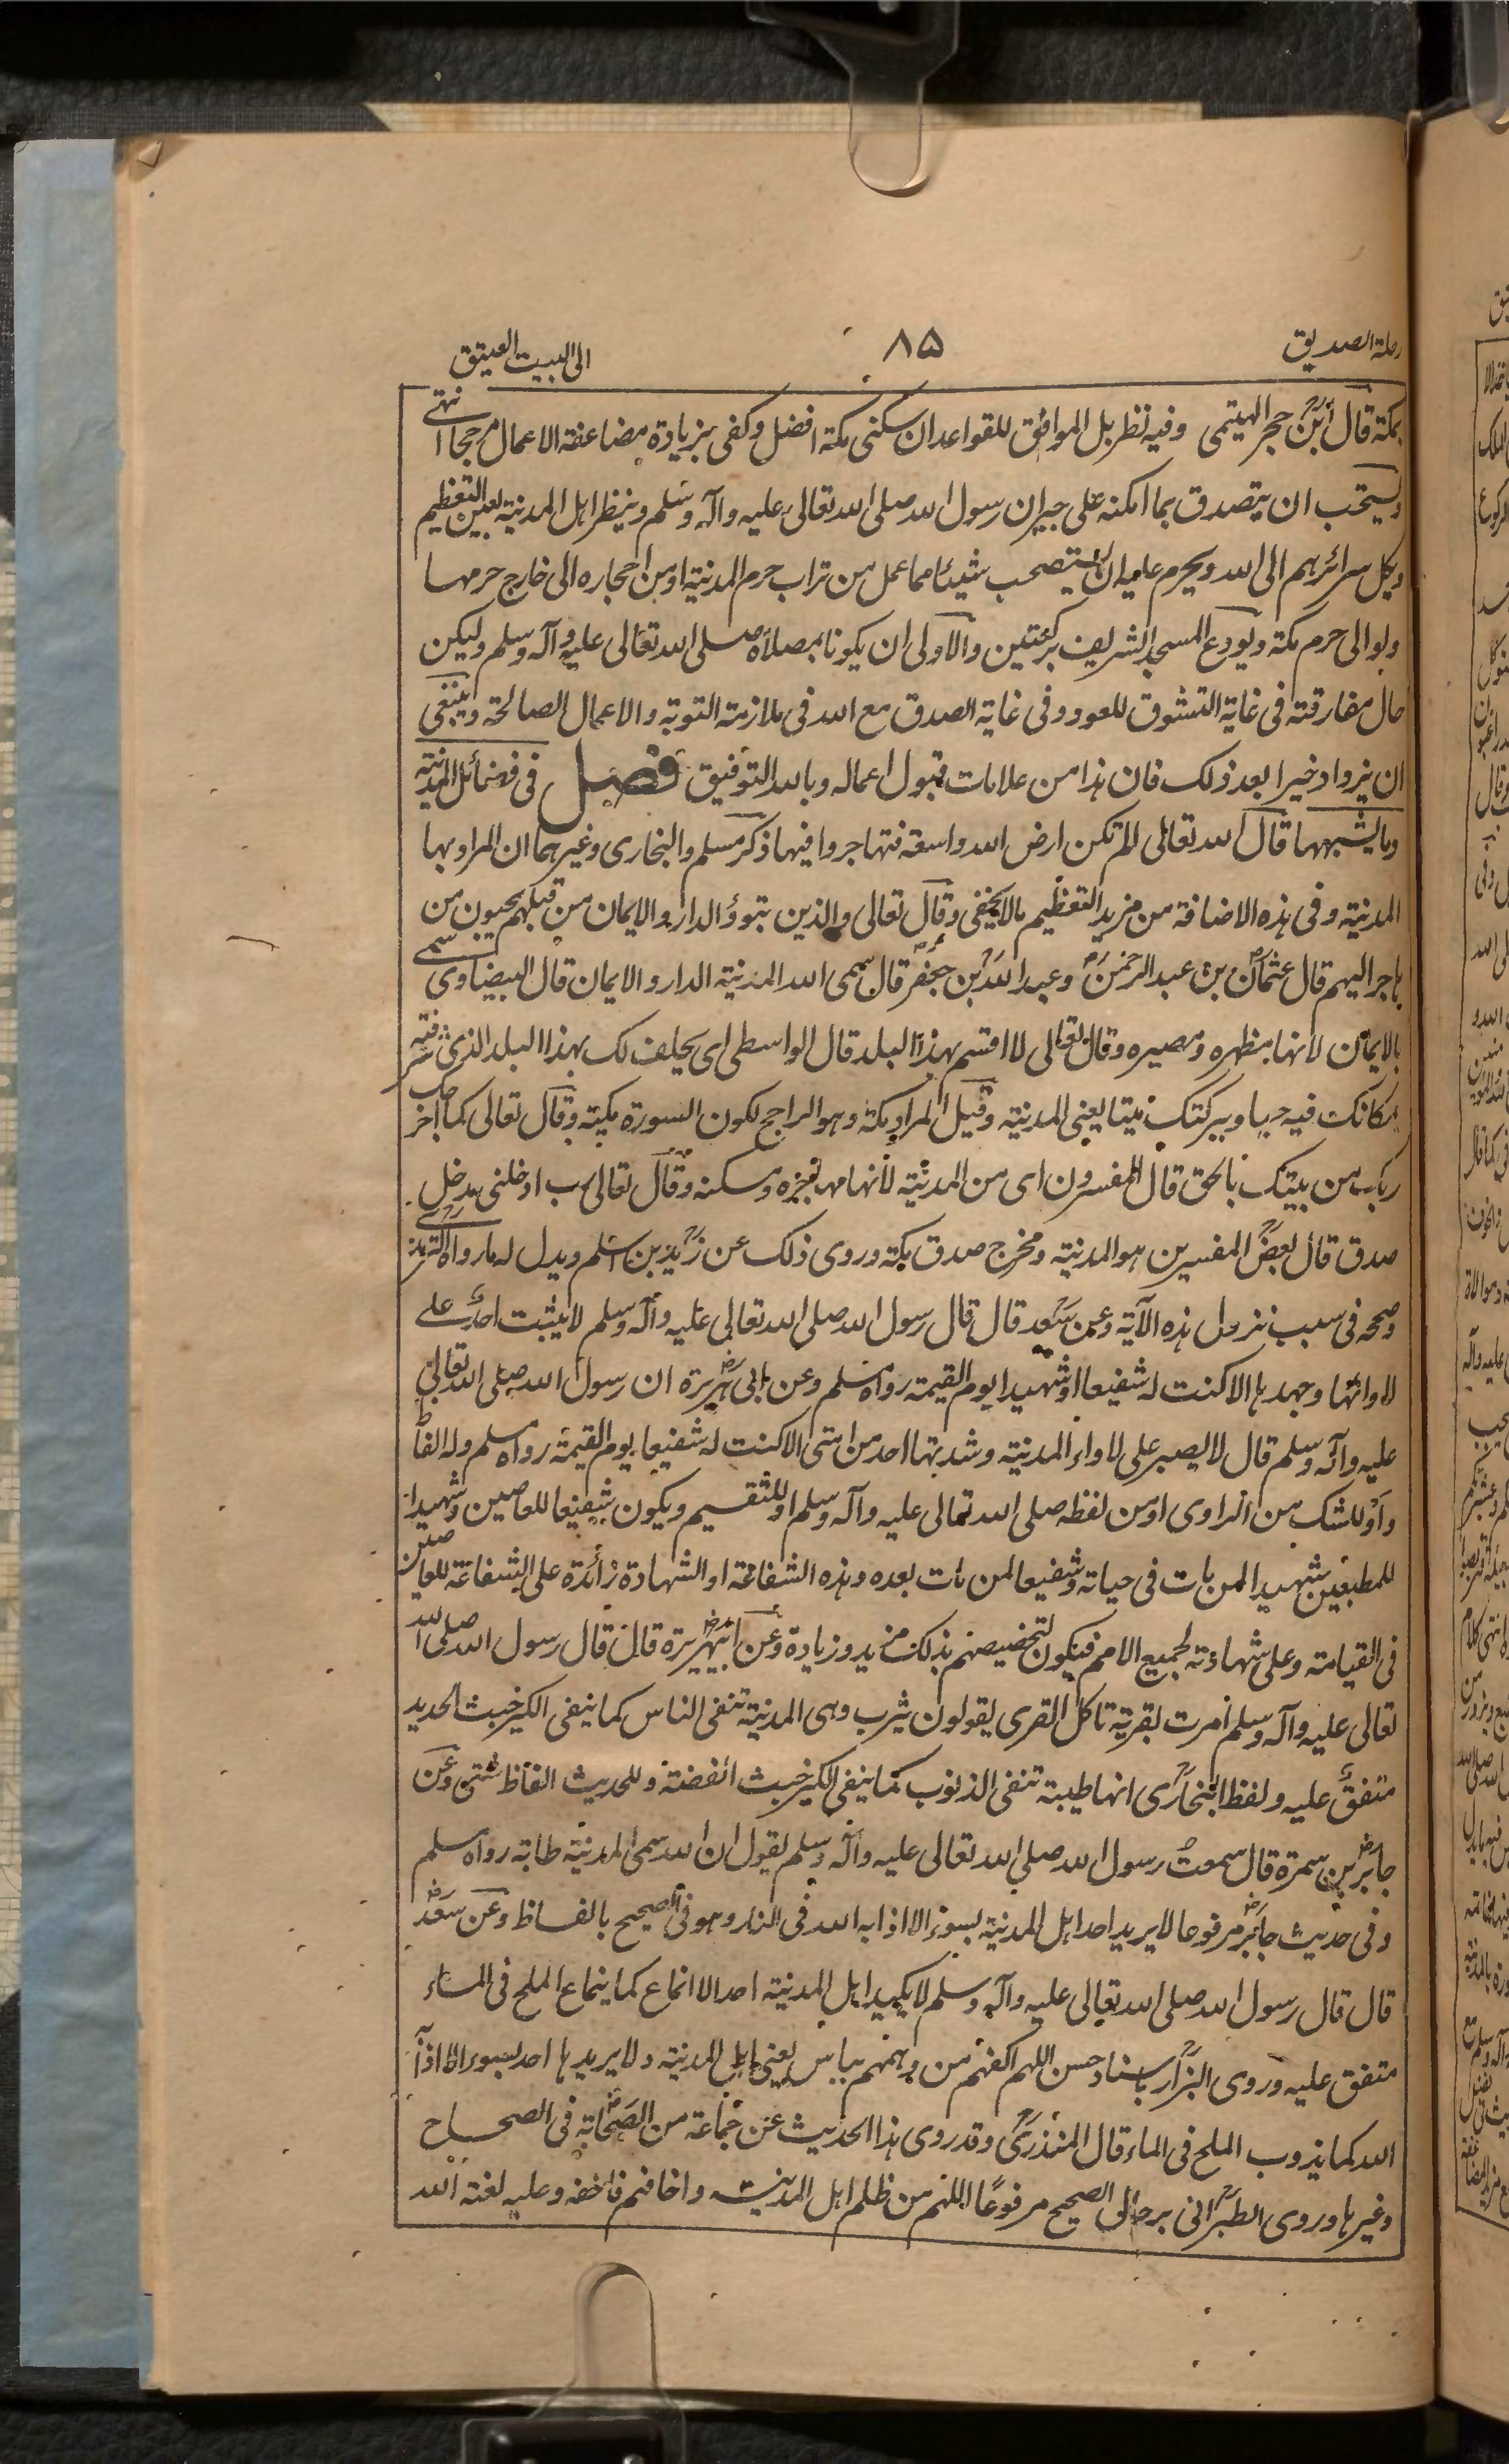 رحلة الصديق
٨٥
الى البيت العتيق
بمكة قال ابن حجر الهيتمى وفيه نظر بل الموافق للقواعد ان سكنى مكة افضل وكفى بزيادة مضاعفة الاعمال مرجحا انتهے
ويستحب ان يتصدق بما امكنه على جيران رسول الله صلى الله تعالى عليه وآله وسلم وينظر اهل المدينة بعين التعظيم
ويكل سرائرهم الى الله ويحرم عليه ان يستصحب شيئا مما عمل من تراب حرم المدينة او من احجاره الى خارج حرمها
ولو الى حرم مكة ويودع المسجد الشريف بركعتين والاولى ان يكونا بمصلاه صلى الله تعالى عليه وآله وسلم وليكن
حال مفارقته فى غاية التشوق للعود وفى غاية الصدق مع الله فى ملازمة التوبة والاعمال الصالحة وينبغى
ان يزداد خيرا بعد ذلك فان هذا من علامات قبول اعماله وبالله التوفيق فصل فى فضائل المدينة
وما يشبهها قال الله تعالى الم تكن ارض الله واسعة فتهاجروا فيها ذكر مسلم والبخارى وغيرهما ان المراد بها
المدينة وفى هذه الاضافة من مزيد التعظيم مالا يخفى وقال تعالى والذين تبوؤ الدار والايمان من قبلهم يحبون من
هاجر اليهم قال عثمان بن عبد الرحمن وعبد الله بن جعفر قال سمى الله المدينة الدار والايمان قال البيضاوى سمى
بالايمان لانها مظهره ومصيره وقال تعالى لا اقسم بهذا البلد قال الواسطى اى يحلف لك بهذا البلد الذى شرفته
بمكانك فيه حيا وببركتك ميتا يعنى المدينة وقيل المراد مكة وهو الراجح لكون السورة مكية وقال تعالى كما اخرجك
ربك من بيتك بالحق قال المفسرون اى من المدينة لانها مهاجره ومسكنه وقال تعالى رب ادخلنى مدخل
صدق قال بعض المفسرين هو المدينة ومخرج صدق مكة وروى ذلك عن زيد بن اسلم ويدل له ما رواه الترمذى
وصححه فى سبب نزول هذه الآية وعن سعد قال قال رسول الله صلى الله تعالى عليه وآله وسلم لا يثبت احد على
لاوائها وجهدها الا كنت له شفيعا او شهيدا يوم القيمة رواه مسلم وعن ابى هريرة ان رسول الله صلى الله تعالى
عليه وآله وسلم قال لا يصبر على لاواء المدينة وشدتها احد من امتى الا كنت له شفيعا يوم القيمة رواه مسلم وله الفاظ
واو للشك من الراوى او من لفظه صلى الله تعالى عليه وآله وسلم او للتقسيم ويكون شفيعا للعاصين وشهيدا
للمطيعين شهيدا لمن مات فى حياته وشفيعا لمن مات بعده وهذه الشفاعة او الشهادة زائدة على الشفاعة للعاصين
فى القيامة وعلى شهادته لجميع الامم فيكون لتخصيصهم بذلك مزيد وزيادة وعن ابيهريرة قال قال رسول الله صلى الله
تعالى عليه وآله وسلم امرت بقرية تاكل القرى يقولون يثرب وهى المدينة تنفى الناس كما ينفى الكير خبث الحديد
متفق عليه ولفظ البخارى انها طيبة تنفى الذنوب كما ينفى الكير خبث الفضة وللحديث الفاظ شتى وعن
جابر بن سمرة قال سمعت رسول الله صلى الله تعالى عليه وآله وسلم يقول ان الله سمى المدينة طابة رواه مسلم
وفى حديث جابر مرفوعا لا يريد احد اهل المدينة بسوء الا اذابه الله فى النار وهو فى الصحيح بالفاظ وعن سعد
قال قال رسول الله صلى الله تعالى عليه وآله وسلم لا يكيد اهل المدينة احد الا انماع كما ينماع الملح فى الماء
متفق عليه وروى البزار باسناد حسن اللهم اكفهم من دهمهم بباس يعنى اهل المدينة ولا يريدها احد بسوء الا اذابه
الله كما يذوب الملح فى الماء قال المنذرى وقد روى هذا الحديث عن جماعة من الصحابة فى الصحاح
وغيرها وروى الطبرانى برجال الصحيح مرفوعًا اللهم من ظلم اهل المدينة واخافهم فاخفه وعليه لعنة الله